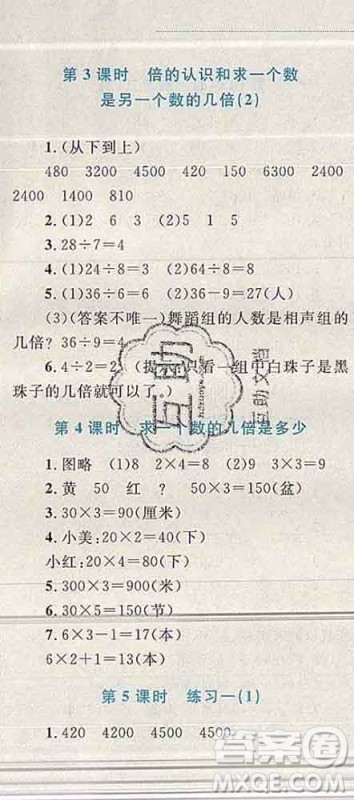 第3课时 倍的认识和求一个数
是另一个数的几倍(2)
1.(从下到上)
480 3200 4500 420 150 630
2400 1400 810
2.(1)2 6 3 (2)5 1 5
3. 28÷7=4
4.(1)24÷8=3 (2)64÷8=8
5.(1)36÷6=6 (2)36-9=27(人)
(3)(答案不唯一)舞蹈组的人数是相声组的
几倍? 36÷9=4
6. 4÷2=2 (提示:只看一组中白珠子是黑
珠子的几倍就可以了。)
第4课时 求一个数的几倍是多少
1.图略 (1)8 2×4=8 (2)9 3×3=9
2.黄 50 红 ? 50×3=150(盆)
3. 30×3=90(厘米)
4.小美:20×2=40(下)
小红:20×4=80(下)
5. 300×3=900(米)
6. 30×5=150(节)
7. 6×3-1=17(本)
6×2+1=13(本)
第5课时 练习一(1)
1. 420 4200 4500 4500
互助
互助文谱
答案圈
MXQE.COM